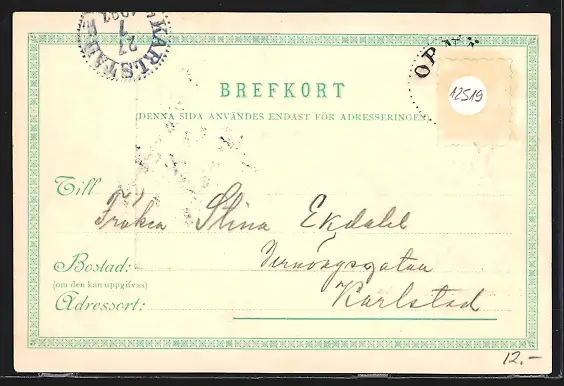 KARLSTAD
27
7
BREFKORT
(DENNA SIDA ANVÄNDES ENDAST FÖR ADRESSERINGEN)
12519
Till
Fröken Stina Ekdahl
Bostad:
(om den kan uppgifvas)
Adressort: Karlstad
12.-